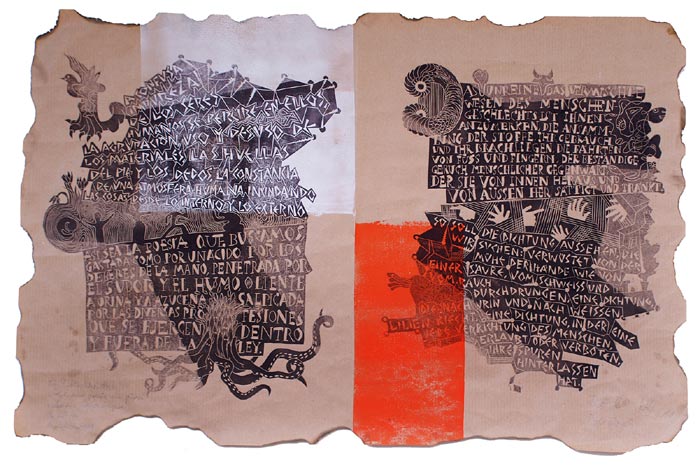 LA CONFUSA
IMPUREZA DE
LOS SERES HU
MANOS SE PERCIBE EN ELLOS
LA AGRUPACION USO Y DESUSO DE
LOS MATERIALES LAS HUELLAS
DEL PIE Y LOS DEDOS LA CONSTANCIA
DE UNA ATMOSFERA HUMANA INUNDANDO
LAS COSAS DESDE LO INTERNO Y LO EXTERNO
ASI SEA LA POESIA QUE BUSCAMOS
GASTADA COMO POR UN ACIDO POR LOS
DEBERES DE LA MANO, PENETRADA POR
EL SUDOR Y EL HUMO OLIENTE
A ORINA Y A AZUCENA SALPICADA
POR LAS DIVERSAS PROFESIONES
QUE SE EJERCEN DENTRO
Y FUERA DE LA LEY.
DAS UNREINE, DAS VERMISCHTE
WESEN DES MENSCHEN
GESCHLECHTS IST IHNEN
ANZUMERKEN: DIE ANSAMM
LUNG DER STOFFE, IHR GEBRAUCH
UND IHR BRACHLIEGEN DIE FÄHRTEN
VON FUSS UND FINGERN DER BESTÄNDIGE
GERUCH MENSCHLICHER GEGENWART
DER SIE VON INNEN HERAUS UND
VON AUSSEN HER SÄTTIGT UND TRÄNKT.
SO SOLL DIE DICHTUNG AUSSEHEN, DIE
WIR SUCHEN: VERWÜSTET VON DER
MÜHE DER HÄNDE WIE VON
EINER SÄURE, VOM SCHWEISS UND
RAUCH DURCHDRUNGEN, EINE DICHTUNG,
DIE NACH URIN UND NACH WEISSEN
LILIEN EINE DICHTUNG, IN DER EINE
VERRICHTUNG DES MENSCHEN
ERLAUBT ODER VERBOTEN
IHRE SPUREN
HINTERLASSEN
HAT.